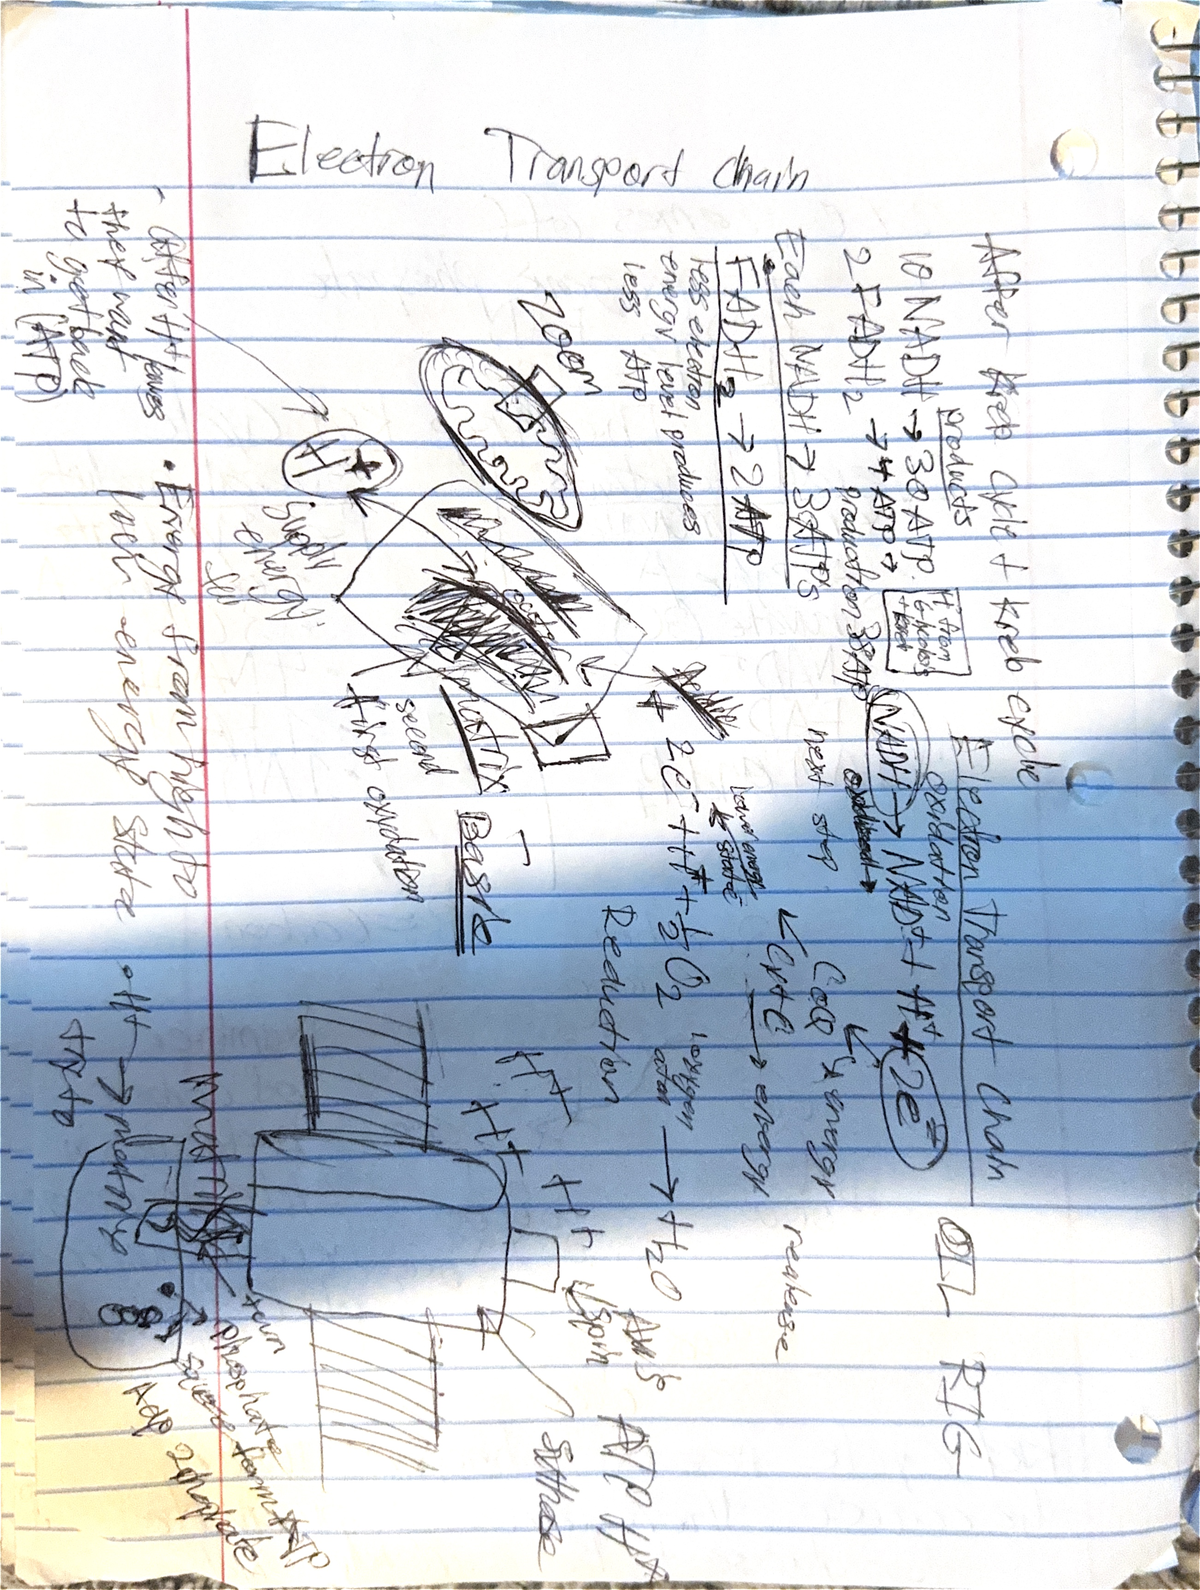 Electron Transport chain
After kreb cycle + kreb cycle
products
10 NADH → 30 ATP
2 FADH2 → 4 ATP →
production 38 ATP
Each NADH → 3 ATPS
FADH2 → 2 ATP
less electron
energy level produces
less ATP
H+ from
Electron Transport Chain
oxidation
NADH → NAD+ + H+ + 2e-
OIL RIG
next step
CoQ ↘ energy
↙ Cyt C → energy
release
lower energy
state
2e- + H+ + 1/2 O2 → H2O
1 oxygen
atom
Reduction
zoom
H+
supply
energy
matrix
second
first oxidation
Basic
- after H+ leaves
they want
to get back
in (ATP)
• Energy from high to
low energy state
ATP H+
H+
H+
H+
spin
synthase
• H+ → motors
turn
phosphate
squeeze form ATP
ADP 2 phosphate